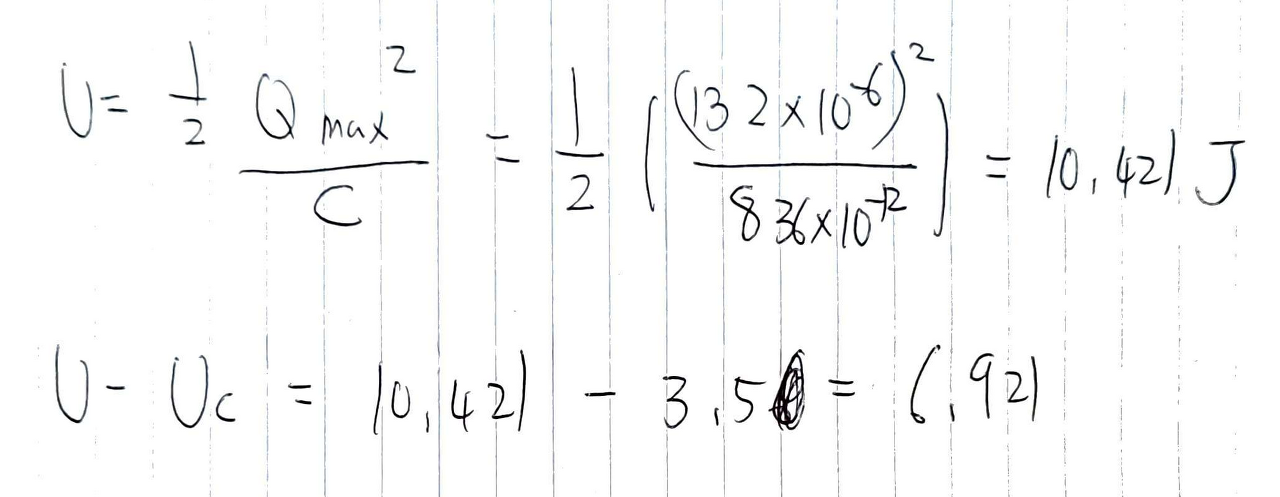 U = 1/2 Qmax²/C = 1/2 ((132×10⁻⁶)²/836×10⁻¹²) = 10.421 J
U - Uc = 10.421 - 3.5 = 6.921